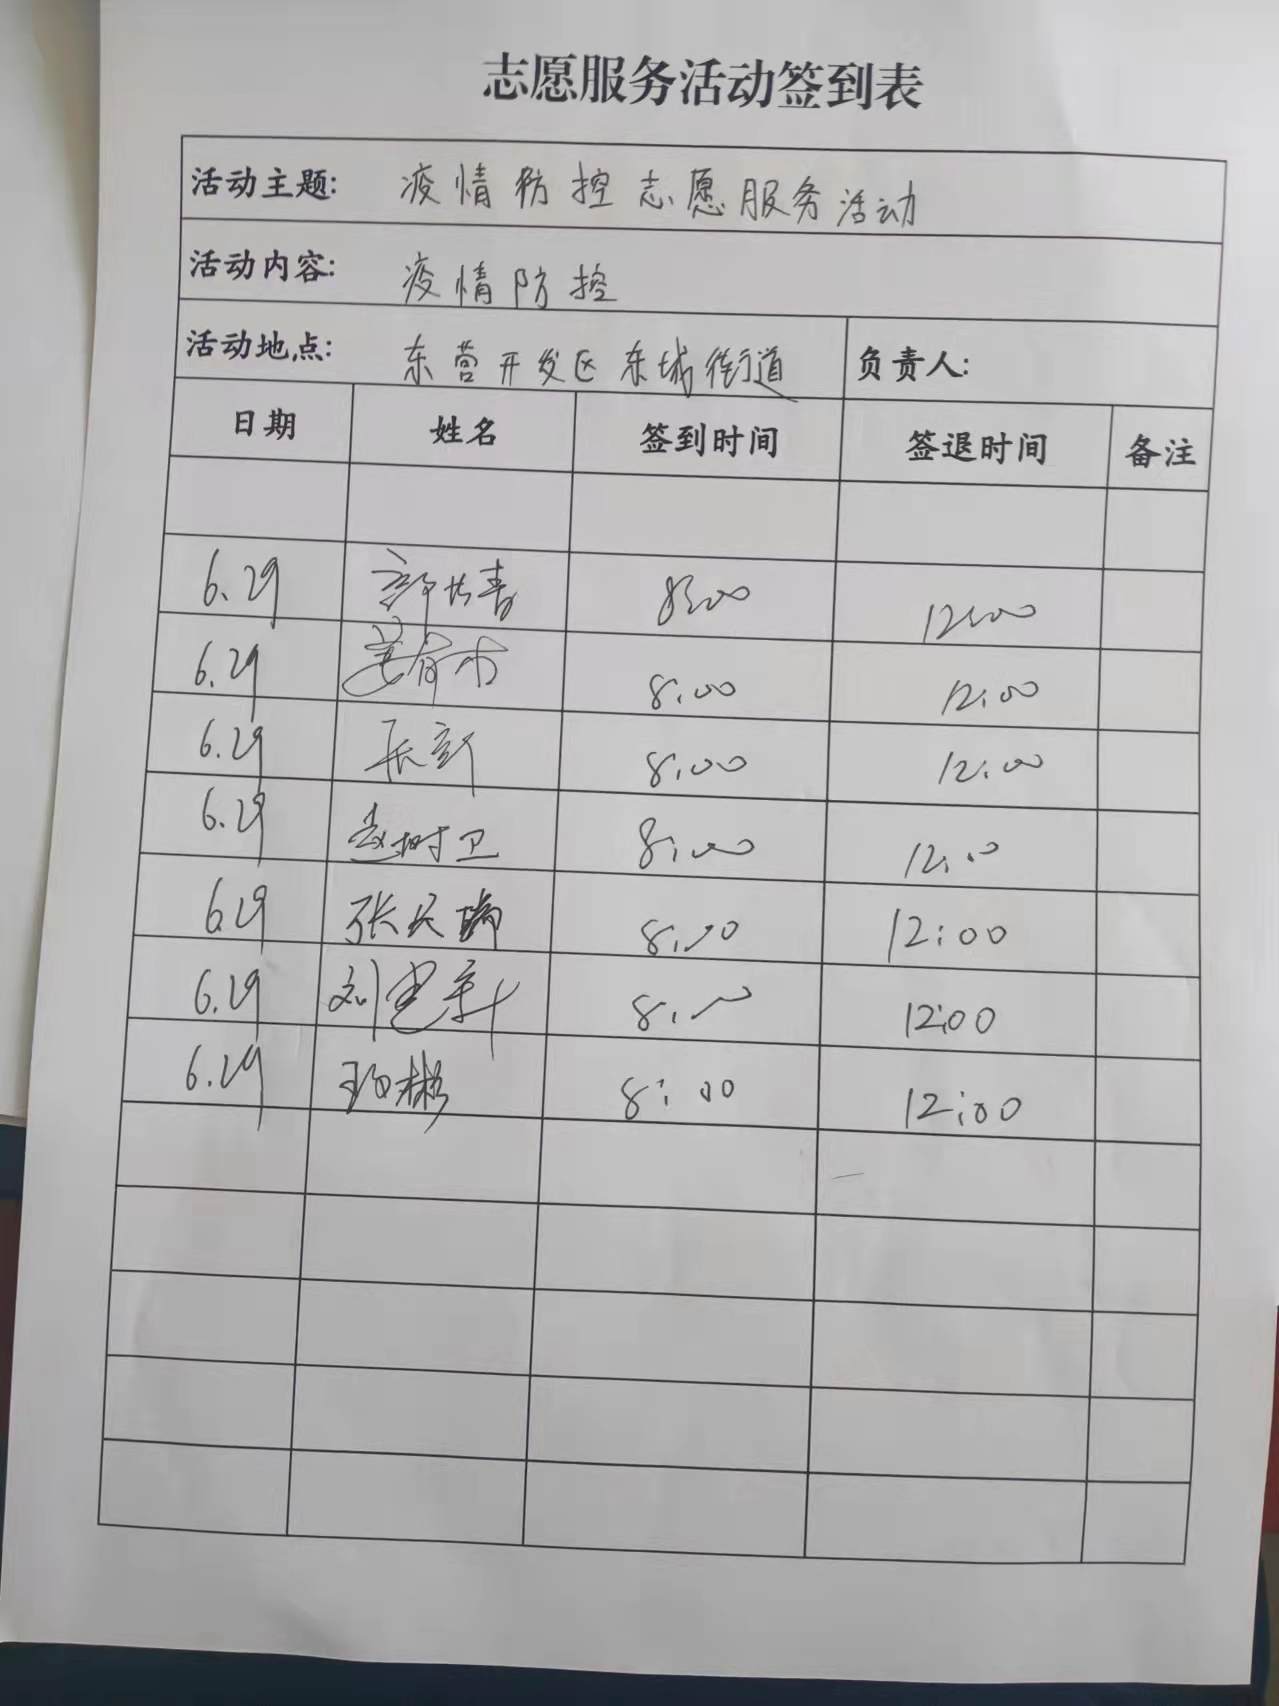 志愿服务活动签到表
活动主题: 疫情防控志愿服务活动
活动内容: 疫情防控
活动地点: 东营开发区东城街道 负责人:
日期 姓名 签到时间 签退时间 备注
6.29 8:00 12:00
6.29 8:00 12:00
6.29 8:00 12:00
6.29 赵树卫 8:00 12:00
6.29 张天瑞 8:00 12:00
6.29 刘 8:00 12:00
6.29 8:00 12:00